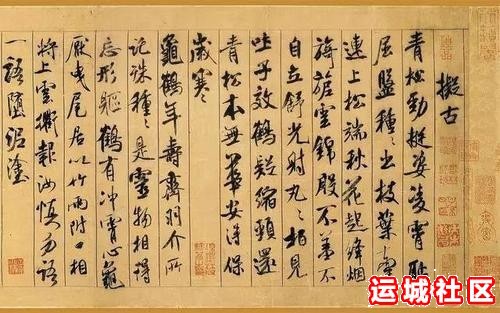 擬古
青松勁挺姿凌霄恥
屈盤種々出枝葉牽
連上松端秋花起絳烟
旖旎雲錦殷不羞不
自立舒光射丸々柏見
吐子效鶴疑縮頸還
青松本無華安得保
歲寒
龜鶴年壽齊羽介所
託殊種々是靈物相得
忘形軀鶴有冲霄心龜
厭曳尾居以竹兩附口相
將上雲衢報汝慎勿語
一語墮泥塗
运城社区